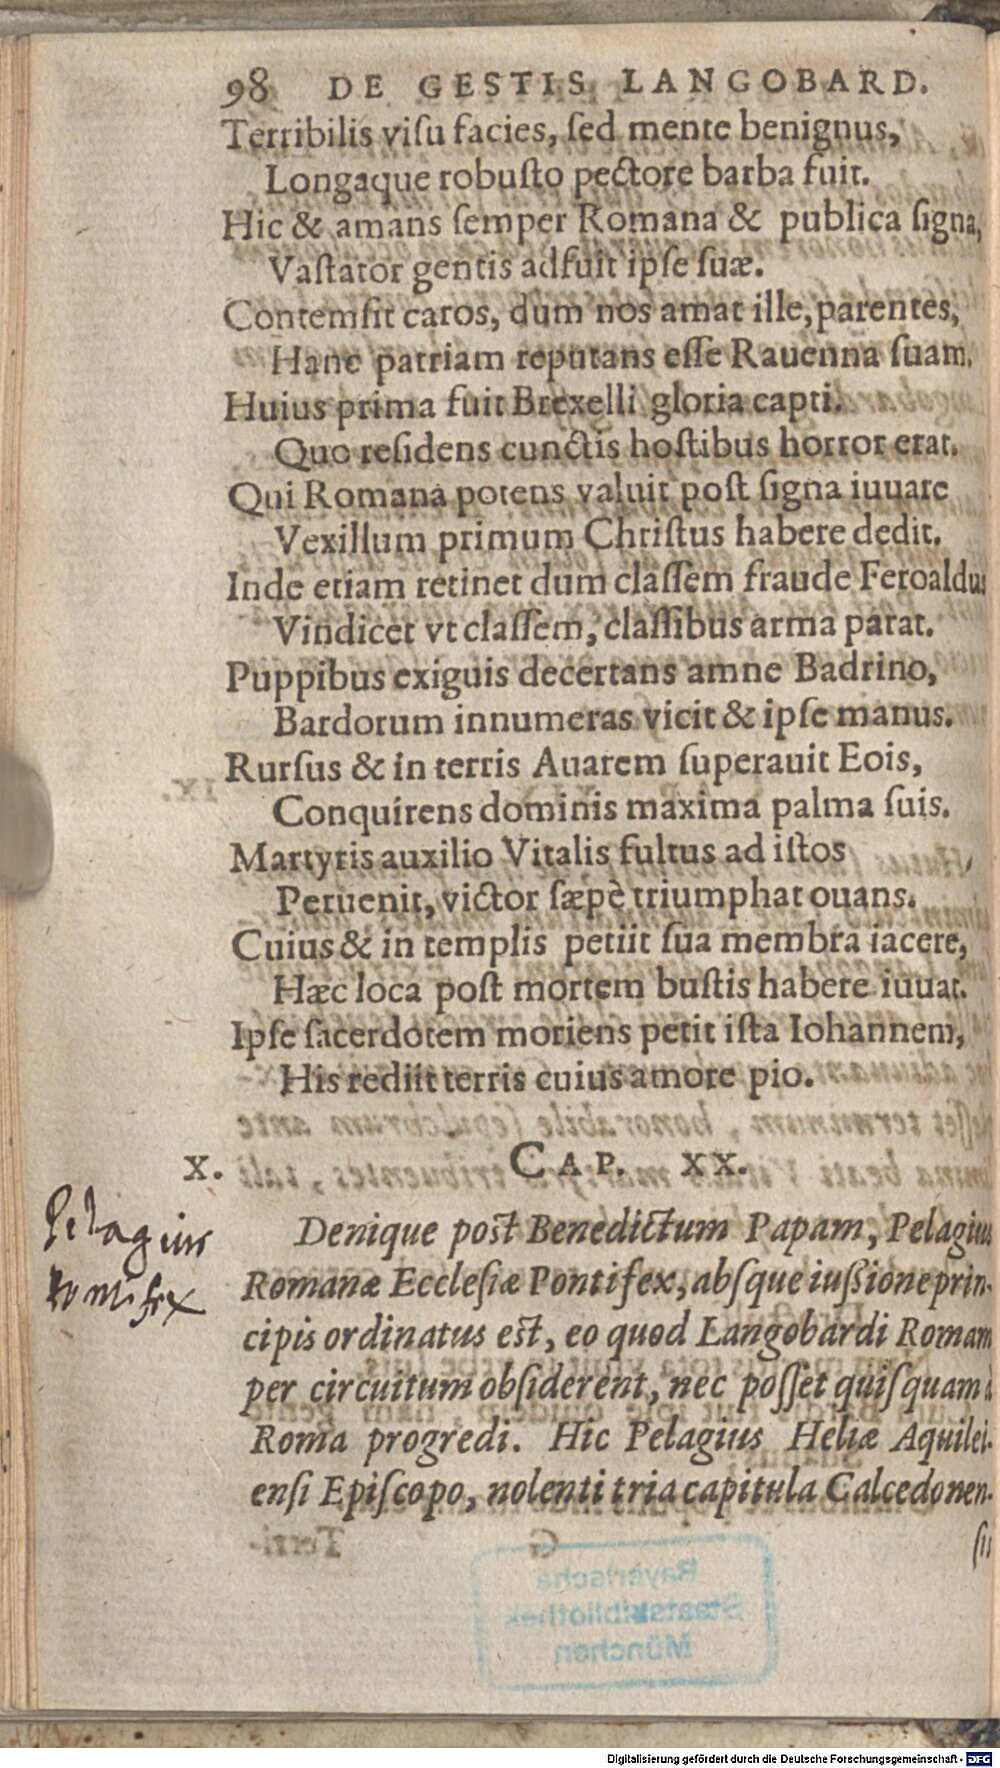 98 DE GESTIS LANGOBARD.
Terribilis viſu facies, ſed mente benignus,
Longaque robuſto pectore barba fuit.
Hic & amans ſemper Romana & publica ſigna,
Vaſtator gentis adfuit ipſe ſuæ.
Contemſit caros, dum nos amat ille, parentes,
Hanc patriam reputans eſſe Rauenna ſuam.
Huius prima fuit Brexelli gloria capti.
Quo reſidens cunctis hoſtibus horror erat.
Qui Romana potens valuit poſt ſigna iuuare
Vexillum primum Chriſtus habere dedit.
Inde etiam retinet dum claſſem fraude Feroaldus
Vindicet vt claſſem, claſſibus arma parat.
Puppibus exiguis decertans amne Badrino,
Bardorum innumeras vicit & ipſe manus.
Rurſus & in terris Auarem ſuperauit Eois,
Conquirens dominis maxima palma ſuis.
Martyris auxilio Vitalis fultus ad iſtos
Peruenit, victor ſæpè triumphat ouans.
Cuius & in templis petiit ſua membra iacere,
Hæc loca poſt mortem buſtis habere iuuat.
Ipſe ſacerdotem moriens petit iſta Iohannem,
His rediit terris cuius amore pio.
X. CAP. XX.
Pelagius
Pontifex
Denique poſt Benedictum Papam, Pelagius
Romanæ Eccleſiæ Pontifex, abſque iuſsione prin-
cipis ordinatus eſt, eo quod Langobardi Romam
per circuitum obſiderent, nec poſſet quiſquam à
Roma progredi. Hic Pelagius Heliæ Aquilei-
enſi Epiſcopo, nolenti tria capitula Calcedonen-
ſis
Bayerische
Staatsbibliothek
München
Digitalisierung gefördert durch die Deutsche Forschungsgemeinschaft - DFG